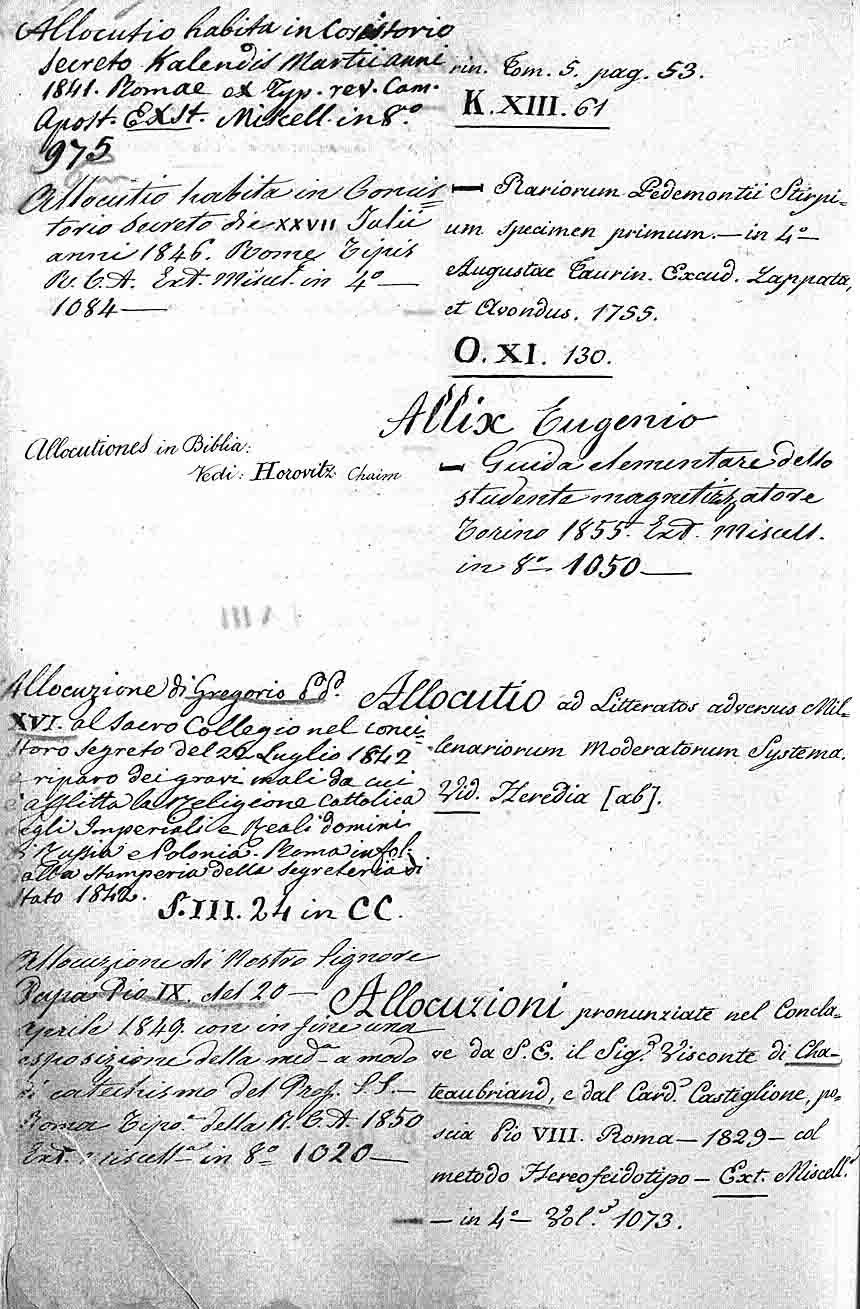 Allocutio habita in Cosistorio
secreto Kalendis Martii anni
1841. Romae ex Typ. rev. Cam.
Apost. Exst. Miscell. in 8.º
975
Allocutio habita in Concis=
torio Secreto die XXVII Julii
anni 1846. Rome Tipis
R. C. A. Ext. Miscel. in 4º —
1084 —
Allocutiones in Biblia:
Vedi: Horovitz Chaim
Allocuzione di Gregorio P.P.
XVI. al Sacro Collegio nel conci-
storo segreto del 22 Luglio 1842
e riparo dei gravi mali da cui
è afflitta la Religione Cattolica
negli Imperiali e Reali domini
di Russia e Polonia. Roma in fol.
alla Stamperia della Segreteria di
Stato 1842.
S. III. 24 in CC.
Allocuzione di Nostro Signore
Papa Pio IX. del 20 —
Aprile 1849. con in fine una
esposizione della med.ª a modo
di catechismo del Prof. S. S. —
Roma Tipo.ª della R. C. A. 1850
Ext. Miscell.ª in 8º 1020 —
rin. Tom. 5. pag. 53.
K. XIII. 61
— Rariorum Pedemontii Stirpi-
um specimen primum. — in 4º —
Augustae Taurin. Excud. Zappata,
et Avondus. 1755.
O. XI. 130.
Allix Eugenio
— Guida elementare dello
studente magnetizzatore
Torino 1855. Ext. Miscell.
in 8º — 1050 —
Allocutio ad Litteratos adversus Mil-
lenariorum Moderatorum Systema.
Vid. Heredia [ab].
Allocuzioni pronunziate nel Concla-
ve da S. E. il Sig.r Visconte di Cha-
teaubriand, e dal Card. Castiglione, po-
scia Pio VIII. Roma — 1829 — col
metodo Hereofeidotipo — Ext. Miscell.
— in 4º — Vol. 1073.